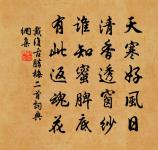 天寒好風日
清香透窗紗
誰知蜜脾底
有此返魂花
戴復古臘梅二首詞典
網集